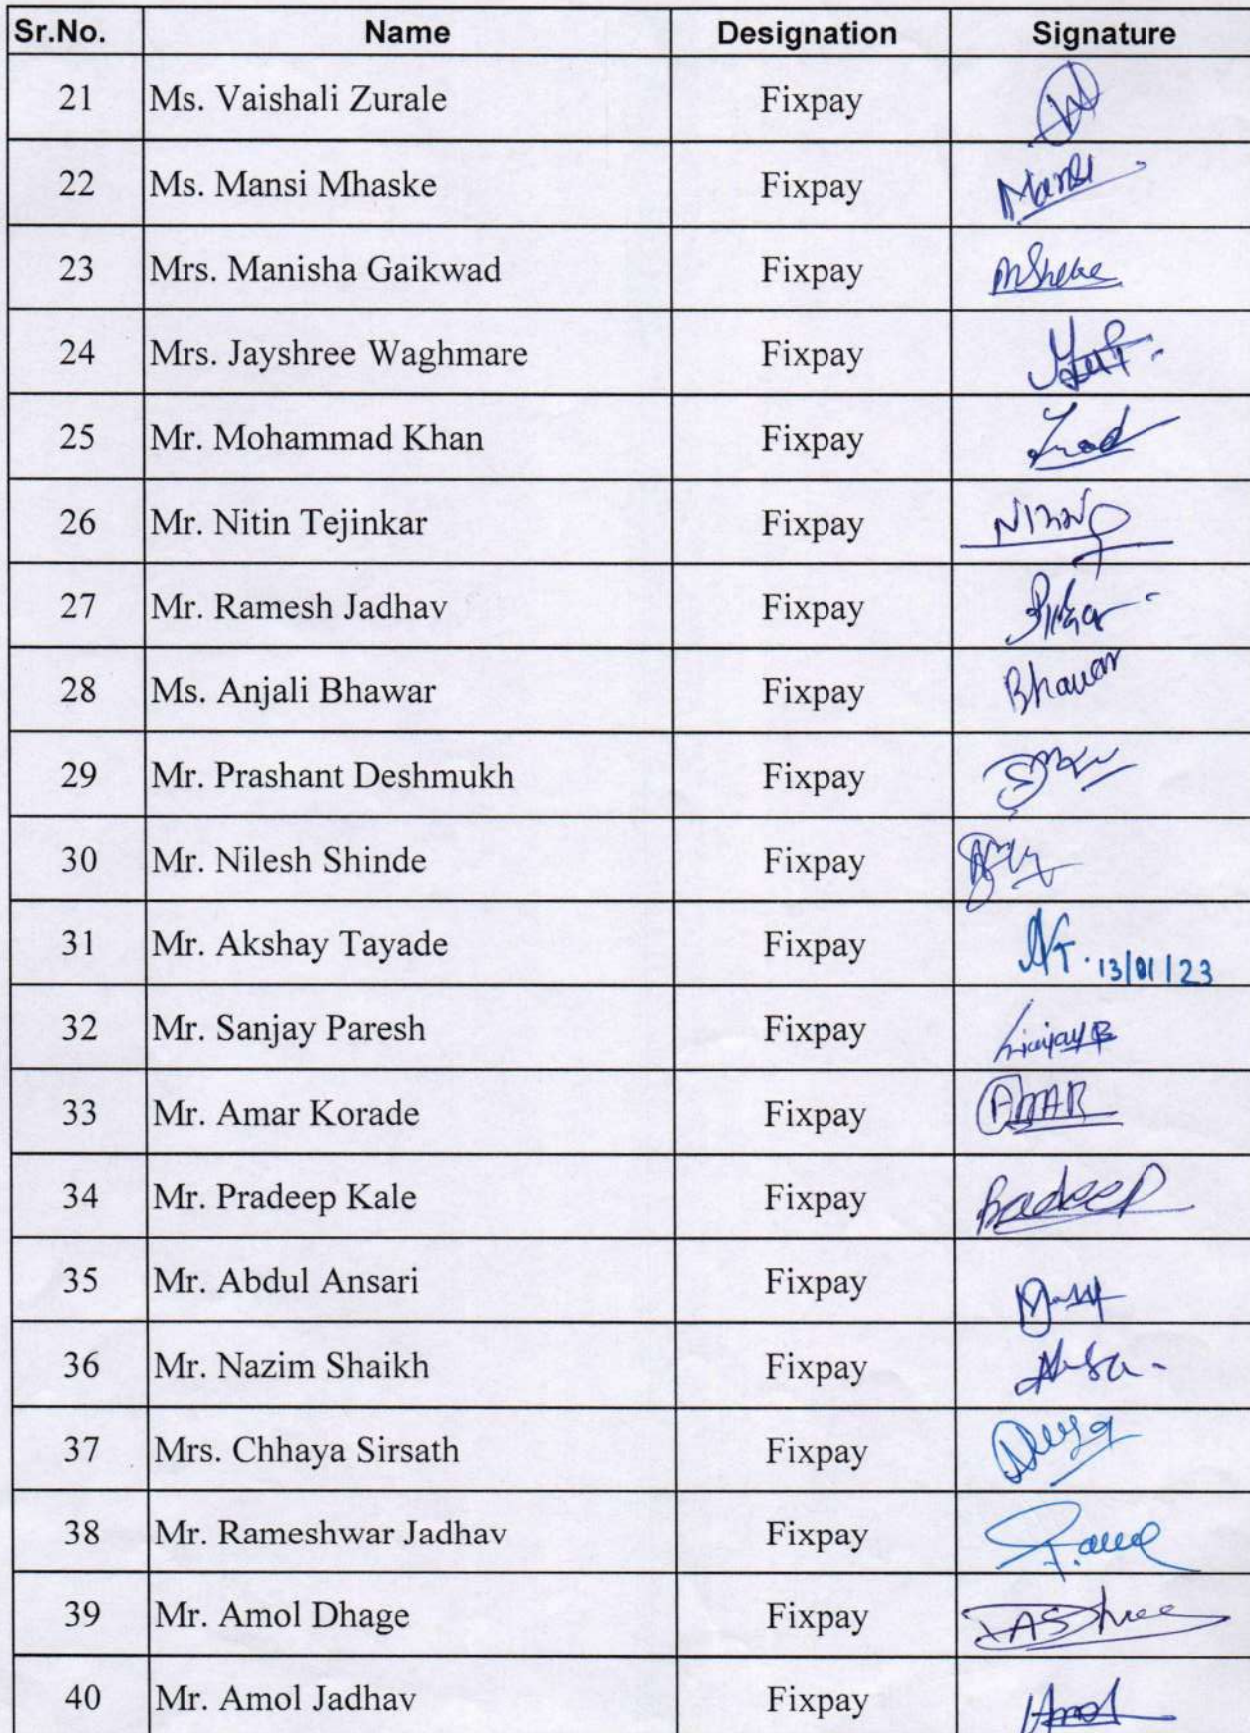 Sr.No. Name Designation Signature
21 Ms. Vaishali Zurale Fixpay
22 Ms. Mansi Mhaske Fixpay Mansi
23 Mrs. Manisha Gaikwad Fixpay
24 Mrs. Jayshree Waghmare Fixpay
25 Mr. Mohammad Khan Fixpay
26 Mr. Nitin Tejinkar Fixpay
27 Mr. Ramesh Jadhav Fixpay
28 Ms. Anjali Bhawar Fixpay Bhawar
29 Mr. Prashant Deshmukh Fixpay
30 Mr. Nilesh Shinde Fixpay
31 Mr. Akshay Tayade Fixpay 13/01/23
32 Mr. Sanjay Paresh Fixpay
33 Mr. Amar Korade Fixpay AMAR
34 Mr. Pradeep Kale Fixpay Pradeep
35 Mr. Abdul Ansari Fixpay
36 Mr. Nazim Shaikh Fixpay
37 Mrs. Chhaya Sirsath Fixpay
38 Mr. Rameshwar Jadhav Fixpay
39 Mr. Amol Dhage Fixpay
40 Mr. Amol Jadhav Fixpay Amol